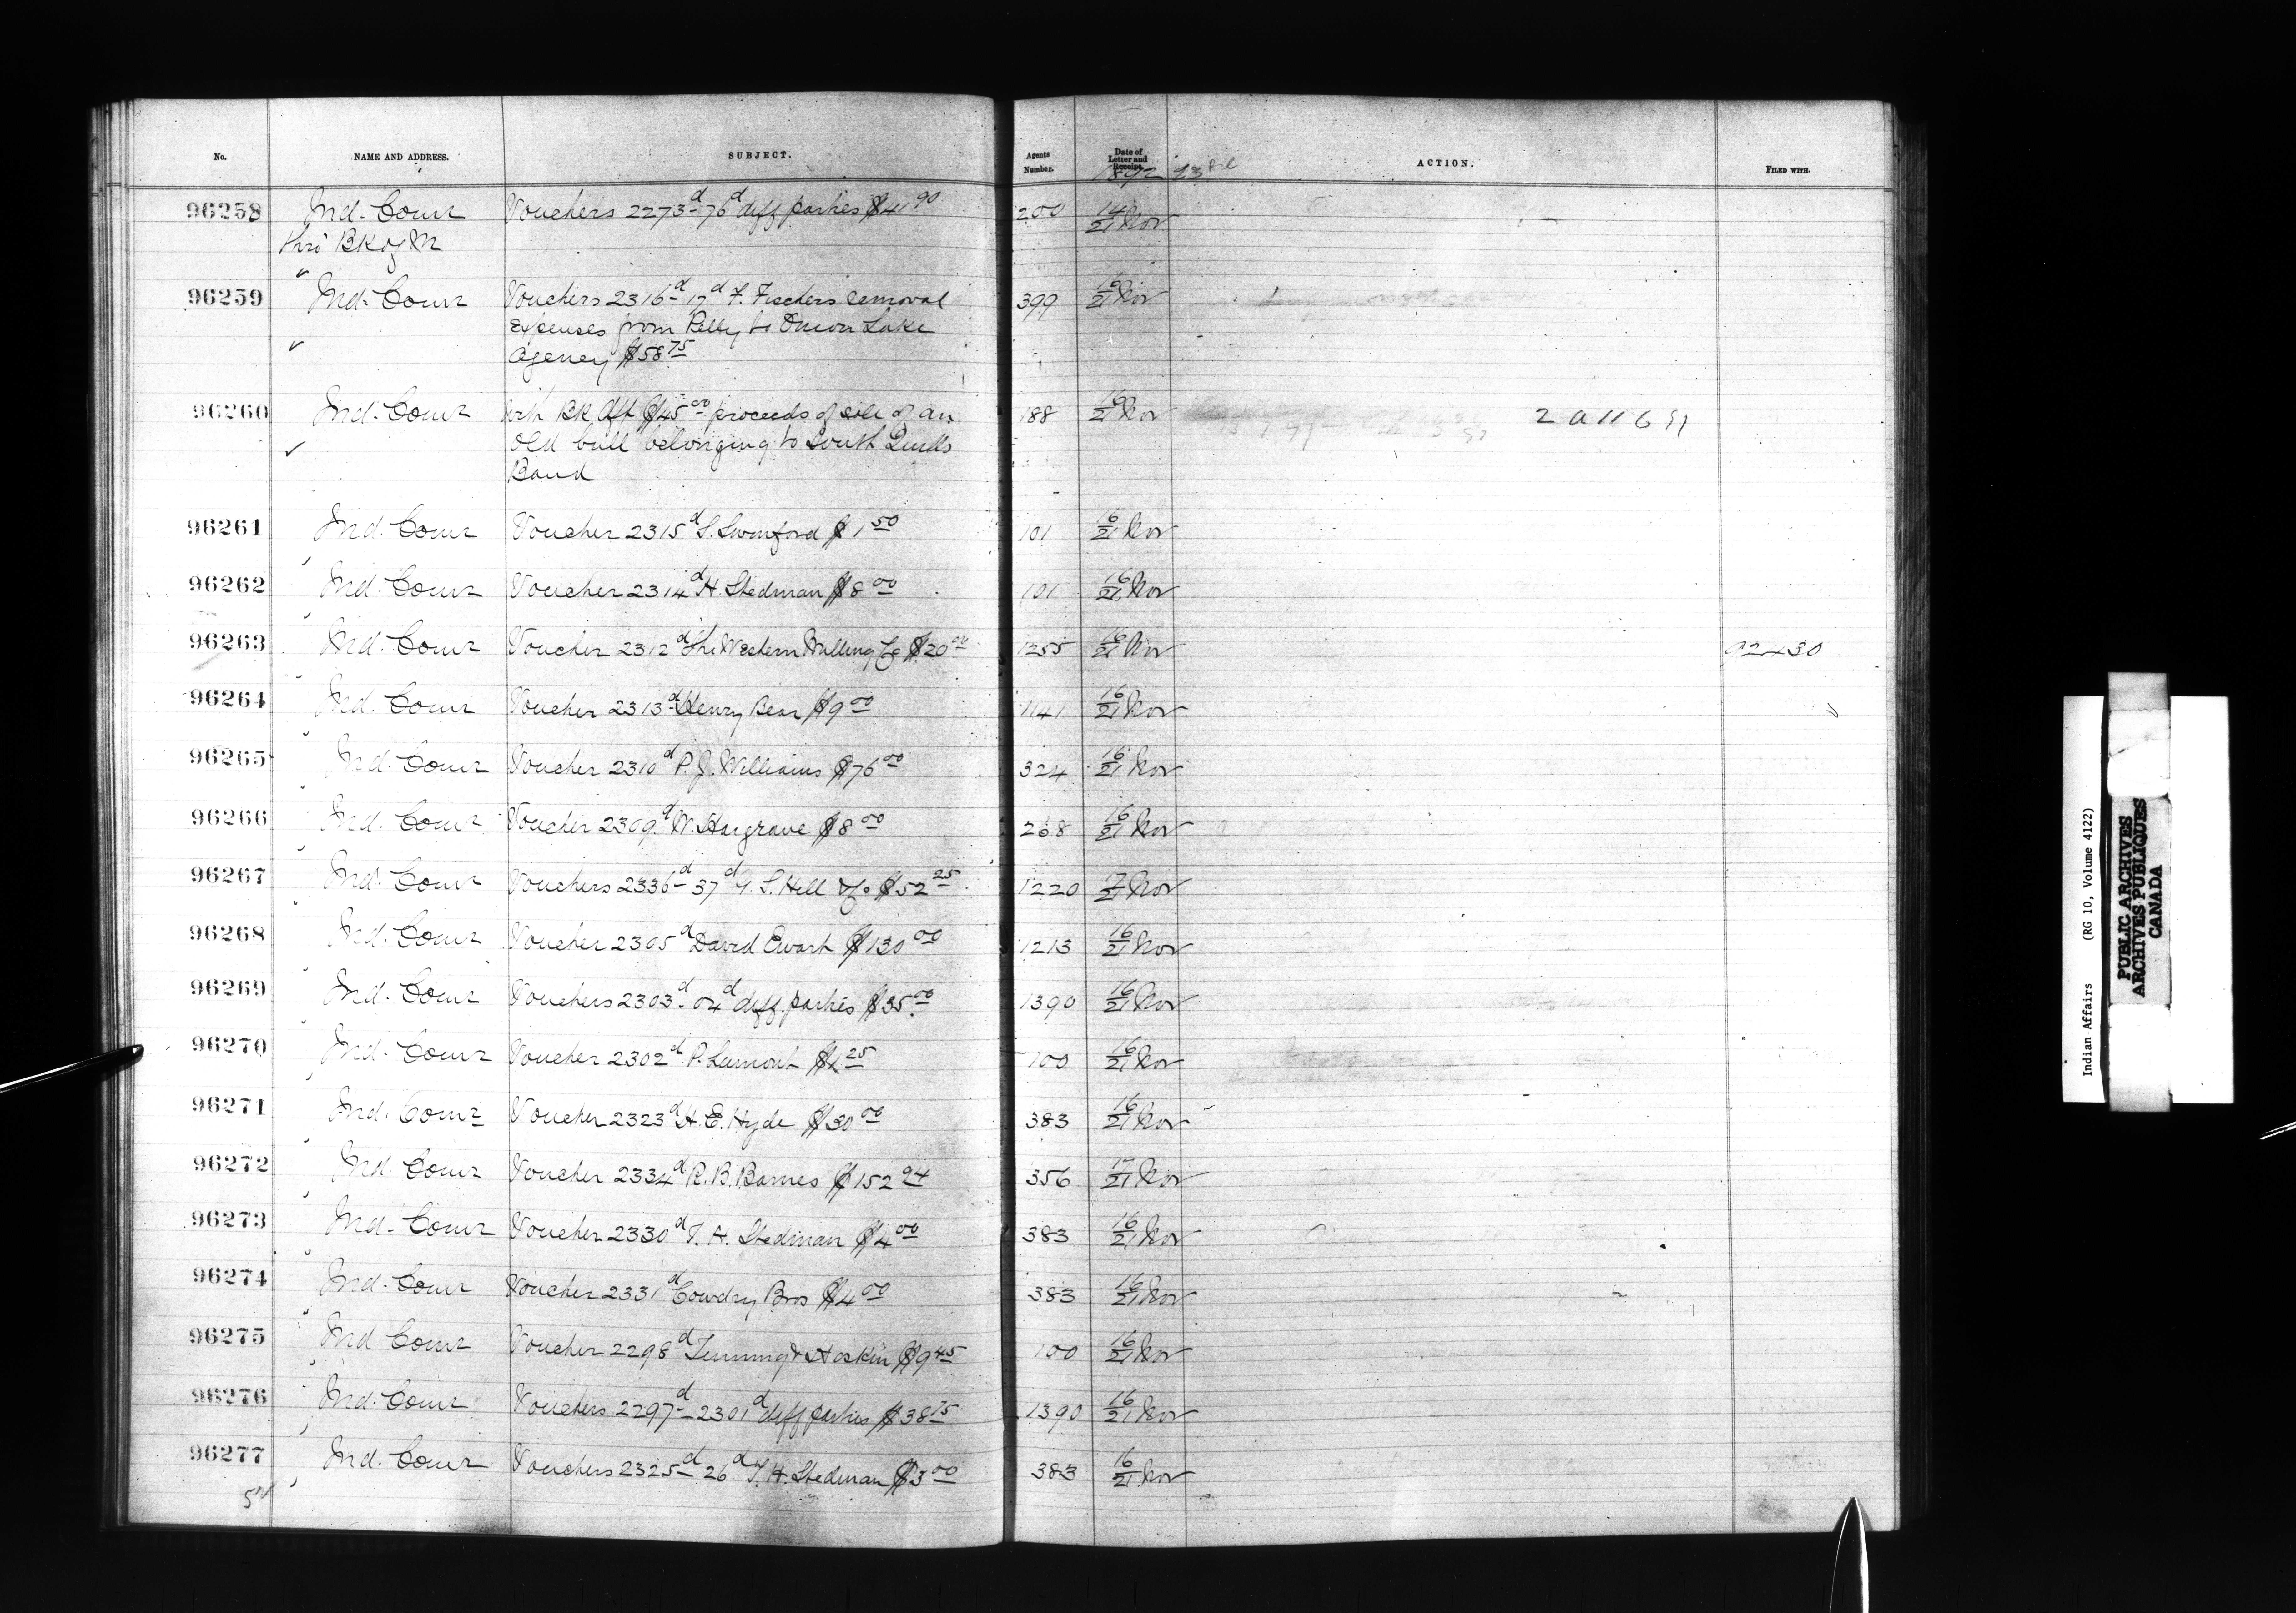 No. NAME AND ADDRESS. SUBJECT. Agents Number. Date of Letter and Receipt. ACTION. FILED WITH.
1892
96258 Ind. Comr Vouchers 2273d-76d diff parties $41 90 200 14/21 Nov
thro BK of M
96259 Ind. Comr Vouchers 2316d-17d F. Fischers removal 399 16/21 Nov
expenses from Pelly to Onion Lake
Agency $58 75
96260 Ind. Comr with BK dft $45 00 proceeds of sale of an 188 16/21 Nov
old bull belonging to South Quills
Band
96261 Ind. Comr Voucher 2315d S. Swinford $1 50 101 16/21 Nov
96262 Ind. Comr Voucher 2314d H. Stedman $8 00 101 16/21 Nov
96263 Ind. Comr Voucher 2312d The Western Milling Co $20 00 1255 16/21 Nov 92430
96264 Ind. Comr Voucher 2313d Henry Bear $9 00 1141 16/21 Nov
96265 Ind. Comr Voucher 2310d P. J. Williams $76 00 324 16/21 Nov
96266 Ind. Comr Voucher 2309d W. Hargrave $8 00 268 16/21 Nov
96267 Ind. Comr Vouchers 2336d-37d G. S. Hell &Co $52 25 1220 17/21 Nov
96268 Ind. Comr Voucher 2305d David Ewart $130 00 1213 16/21 Nov
96269 Ind. Comr Vouchers 2303d-04d diff. parties $35 00 1390 16/21 Nov
96270 Ind. Comr Voucher 2302d P. Lamont $4 25 100 16/21 Nov
96271 Ind. Comr Voucher 2323d H. E. Hyde $30 00 383 16/21 Nov
96272 Ind. Comr Voucher 2334d R. B. Barnes $152 94 356 17/21 Nov
96273 Ind. Comr Voucher 2330d T. H. Stedman $4 00 383 16/21 Nov
96274 Ind. Comr Voucher 2331d Cowdry Bros $4 00 383 16/21 Nov
96275 Ind Comr Voucher 2298d & Hoskin $9 45 100 16/21 Nov
96276 Ind. Comr Vouchers 2297d-2301d diff parties $38 75 1390 16/21 Nov
96277 Ind. Comr Vouchers 2325d-26d T. H. Stedman $3 00 383 16/21 Nov
Indian Affairs (RG 10, Volume 4122)
PUBLIC ARCHIVES
ARCHIVES PUBLIQUES
CANADA